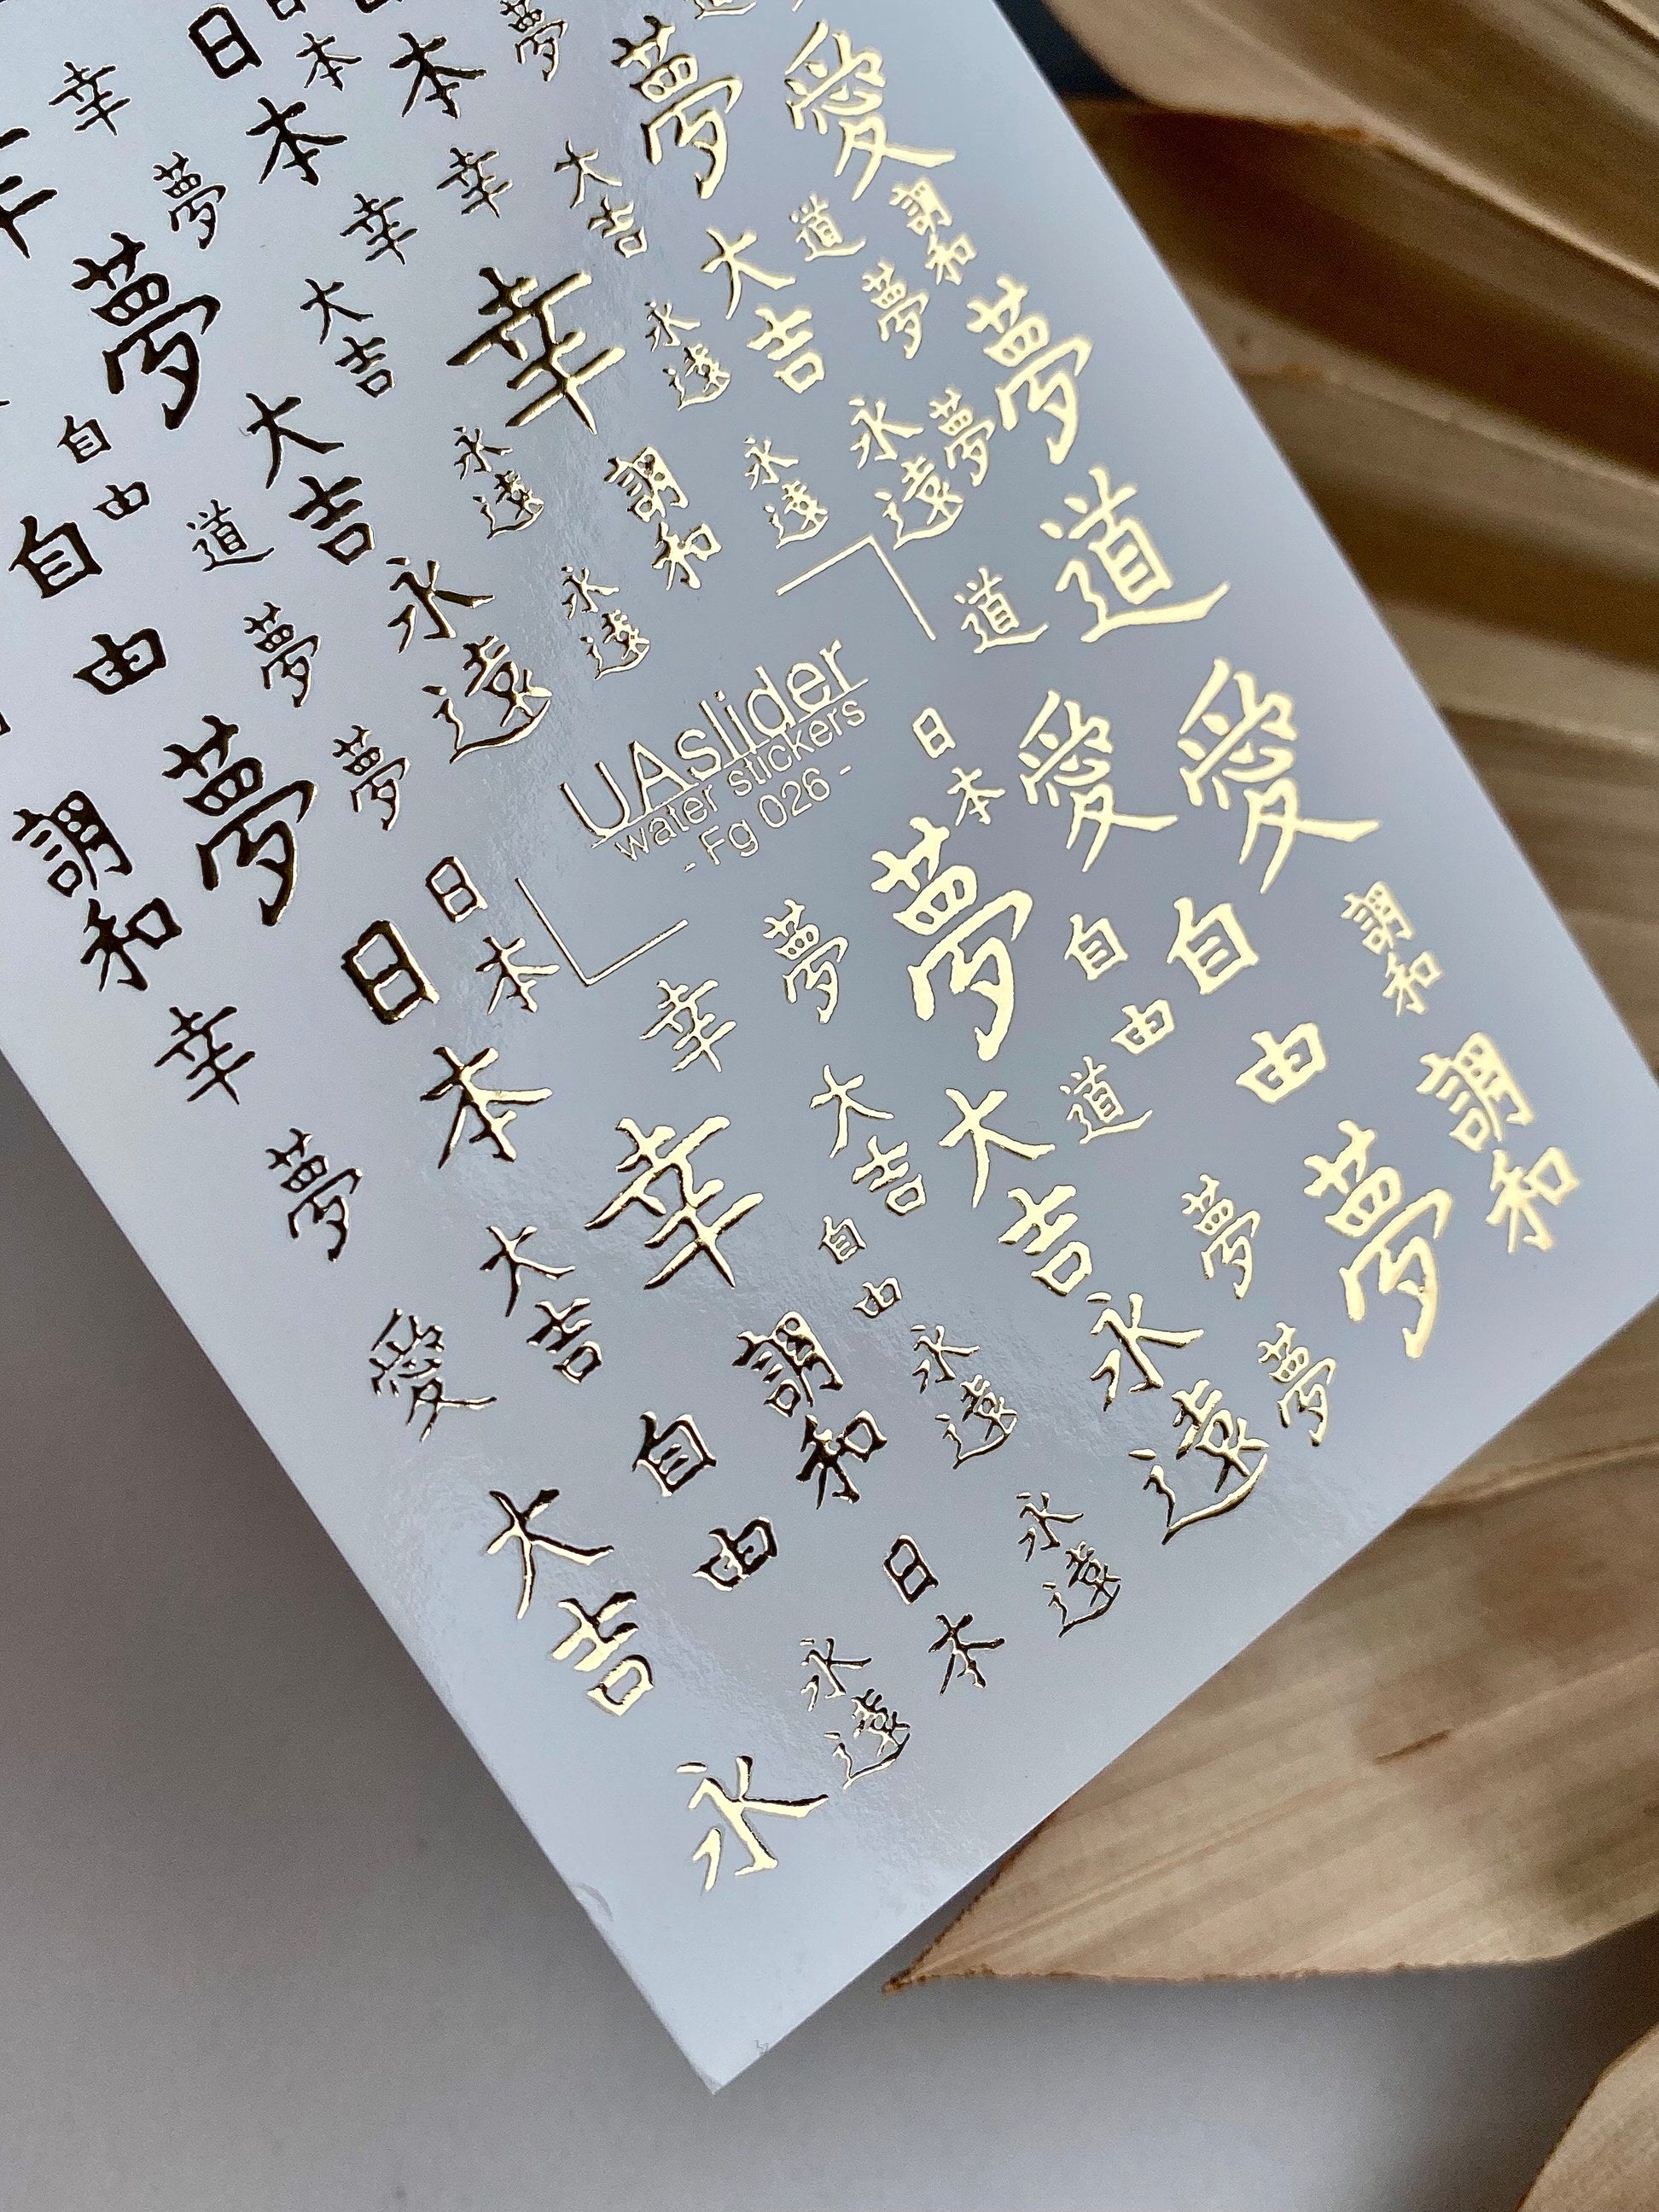 幸
日本
日本
本
夢
夢
愛
幸
幸
大吉
夢
夢
大吉
幸
永遠
大吉
道
調和
夢
夢
自由
道
大吉
永遠
調和
永遠
永遠
夢
道
道
自由
夢
永遠
永遠
UAslider
water stickers
- Fg 026 -
日本
愛
愛
調和
夢
夢
日本
日本
幸
夢
夢
自由
自由
調和
幸
夢
大吉
幸
大吉
大吉
道
夢
夢
調和
愛
大吉
自由
調和
自由
永遠
永遠
夢
大吉
自由
日本
永遠
永遠
永